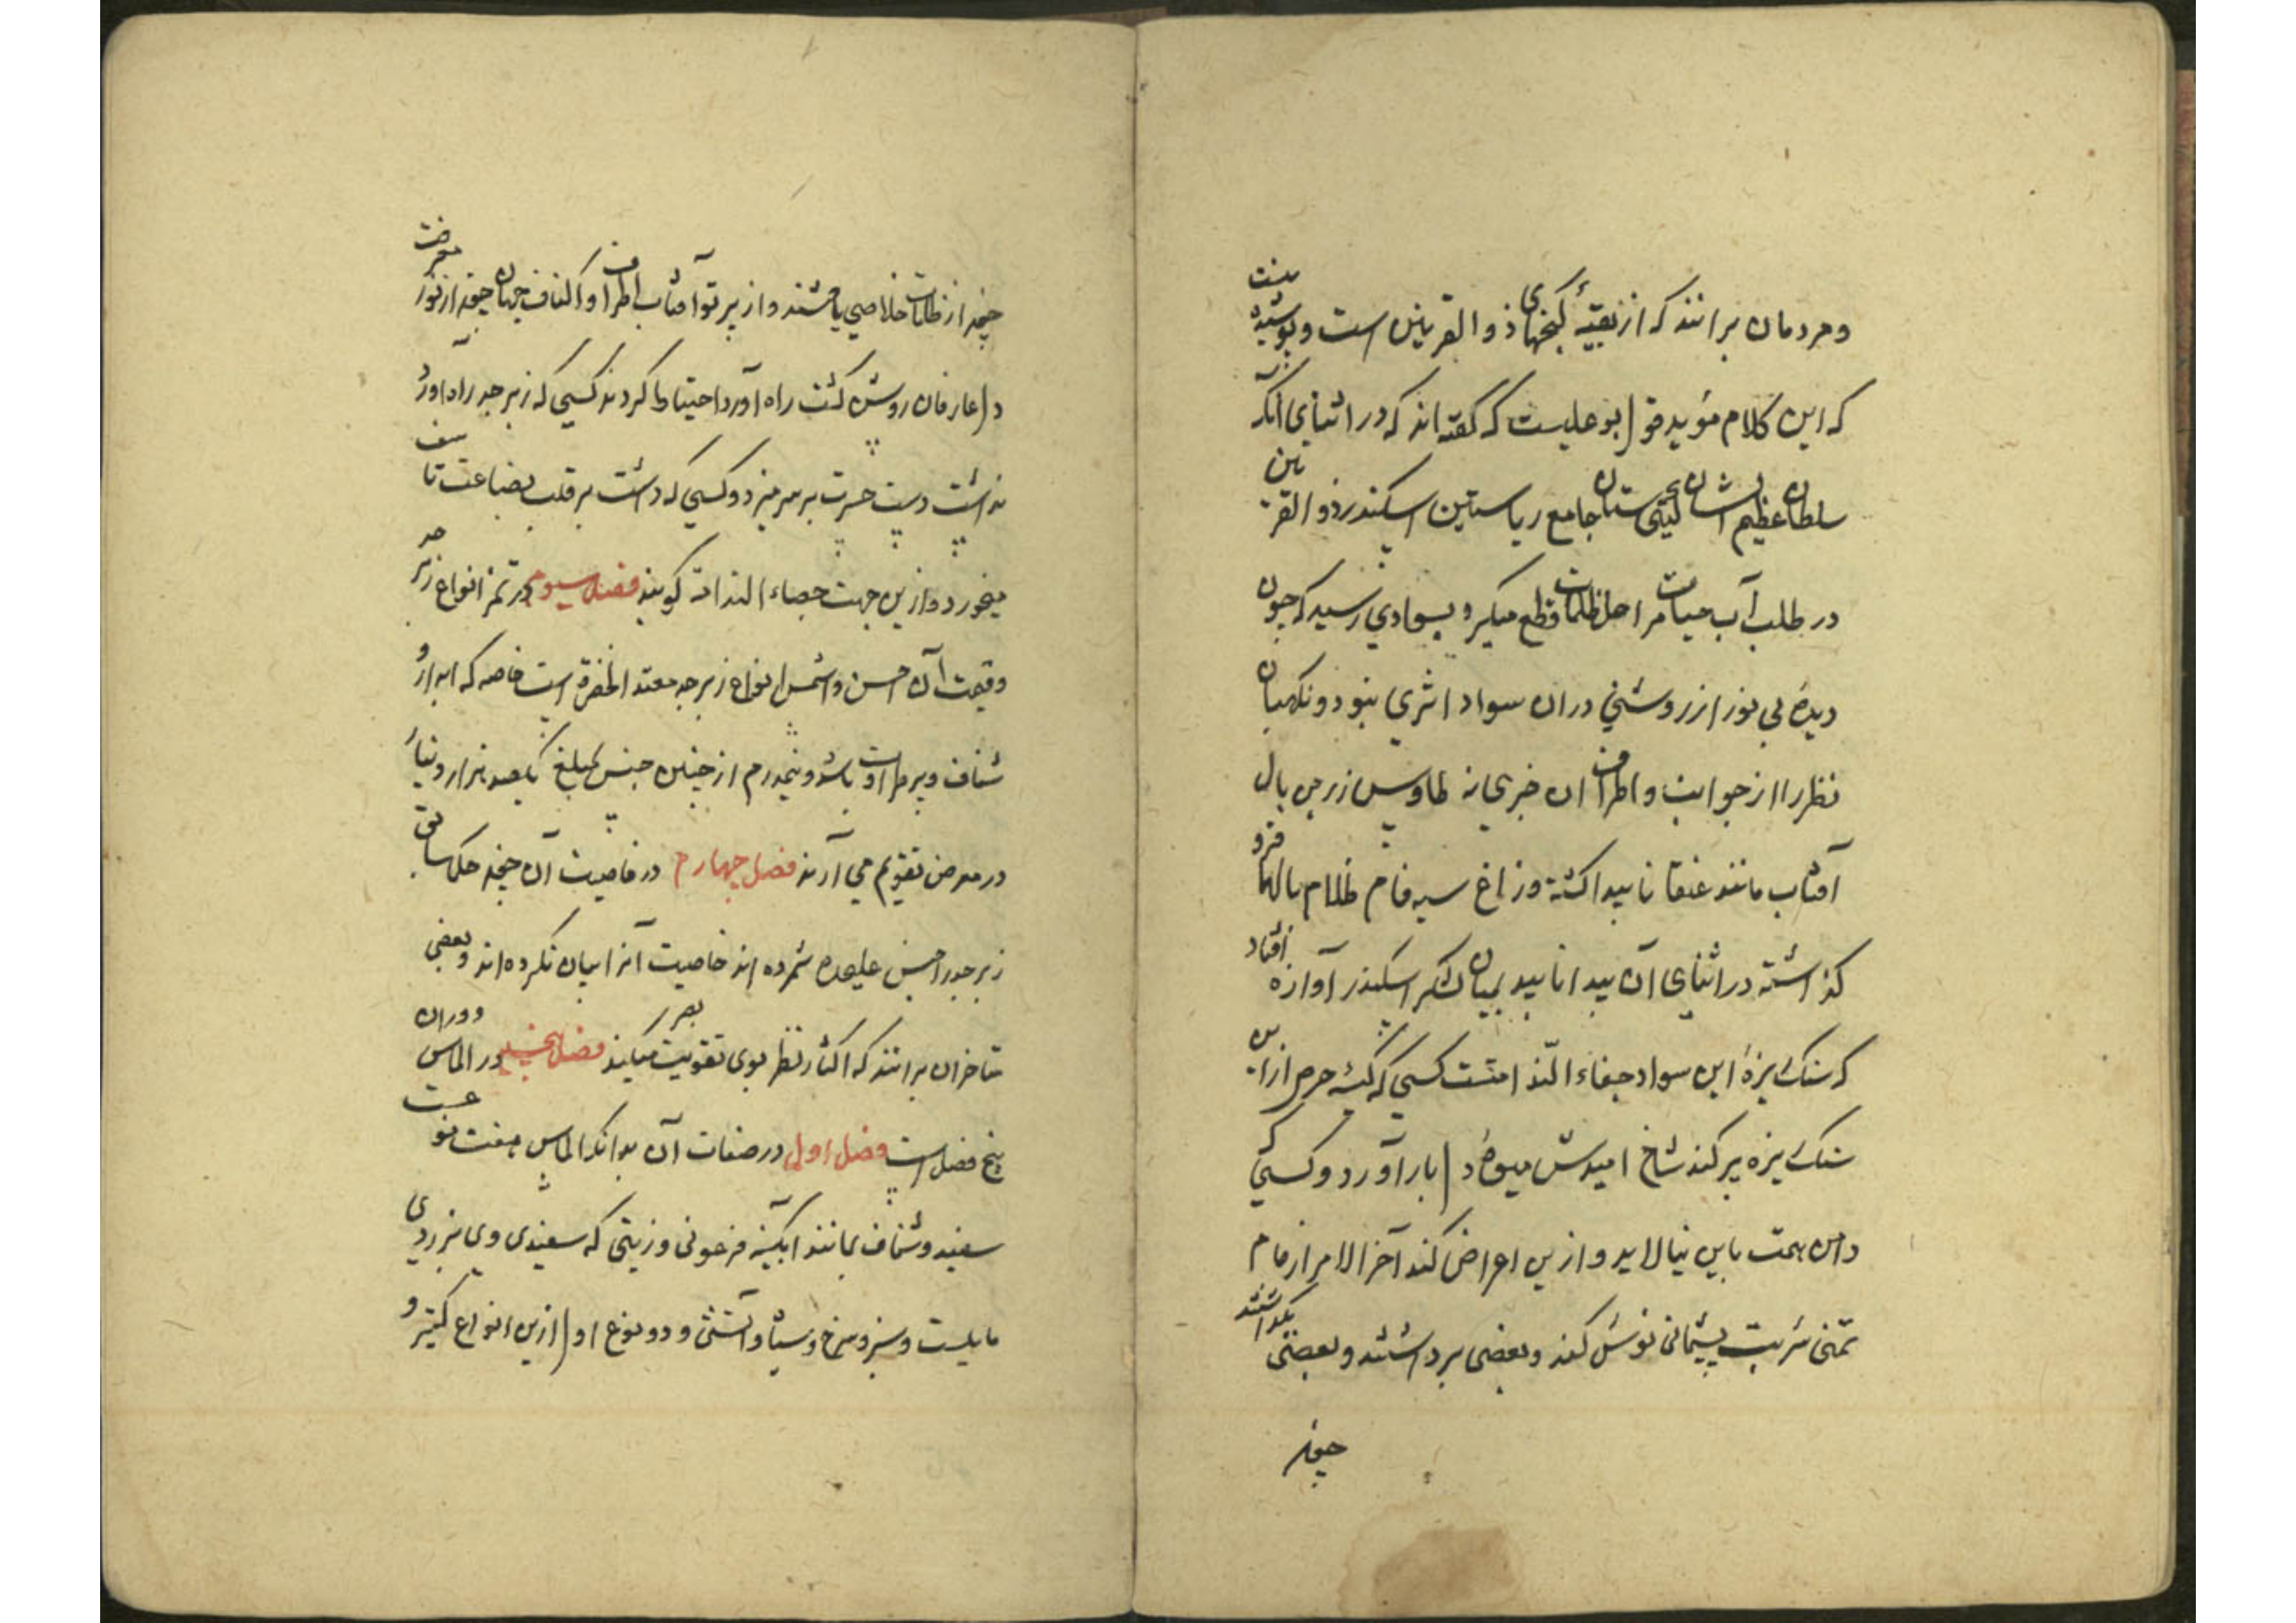 ومردمان برانند که از بقیهٔ گنجهای ذو القرنین است و پوشیده نیست
که این کلام مؤید قول بوعلیست که گفته اند که در اثنای آنکه
سلطان عظیم الشان گیتی ستان جامع ریاستین اسکندر ذو القرنین
در طلب آب حیات مراحل ظلمات قطع میکرد بسوادی رسید که چون
دیدهٔ بی نور از روشنی دران سواد اثری نبود و نکهبان
نظر را از جوانب و اطراف ان خبری نه طاوس زرین بال
آفتاب مانند عنقا ناپیدا کشته و زاغ سیه فام ظلام بالها فرو
کذاشته در اثنای آن پیدا ناپید بمیان لشکر اسکندر آوازه افتاد
که سنک ریزهٔ این سواد حصاء الندامتست کسی که کیسهٔ حرص از این
سنک ریزه پر کند شاخ امیدش میوهٔ دل بار آورد و کسی که
دامن همت باین نیالاید و ازین اعراض کند آخر الامر از جام
تمنی شربت پشیمانی نوش کند و بعضی برداشتند و بعضی بگذاشتند
چون
چون از ظلمات خلاصی یافتند و از پرتو آفتاب اطراف و اکناف جهان چون از نور معرفت
دل عارفان روشن کشت راه آورد احتیاط کردند کسی که زبرجد راه آورد
نداشت دست حسرت بر سر میزد و کسی که داشت بر قلت بضاعت تاسف
میخورد و ازین جهت حصاء الندامة کویند فصل سیوم در ثمن انواع زبرجد
و قیمت آن احسن و اشمل انواع زبرجد معتد الخضرة است خاصه که ابدار و
شفاف و پر طراوت باشد و نیمدرم از چنین جنس بمبلغ یکصد هزار دینار
در معرض تقویم می آرند فصل چهارم در خاصیت آن چون حکماء سابق
زبرجد را جنس علیحده شمرده اند خاصیت آنرا بیان نکرده اند و بعضی
متاخران برانند که اکثار نظر بوی تقویت بصر میکند فصل پنجم در الماس و دران
پنج فصل است فصل اول در صفات آن بدانکه الماس هفت نوعست
سفید و شفاف بمانند ابکینه فرعونی و زیتی که سفیدی وی بزردی
مایلست و سبز و سرخ و سیاه و آتشی و دو نوع اول ازین انواع کثیر و